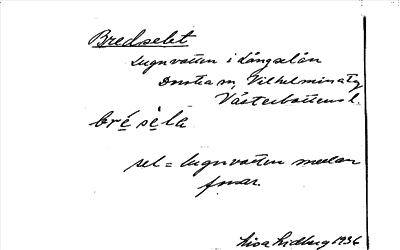 Bredselet
Lugnvatten i Långselån
Dorotea sn, Vilhelmina tg
Västerbottens l.
bré sèla
sel = lugnvatten mellan
forsar.
Lisa Lidberg 1936